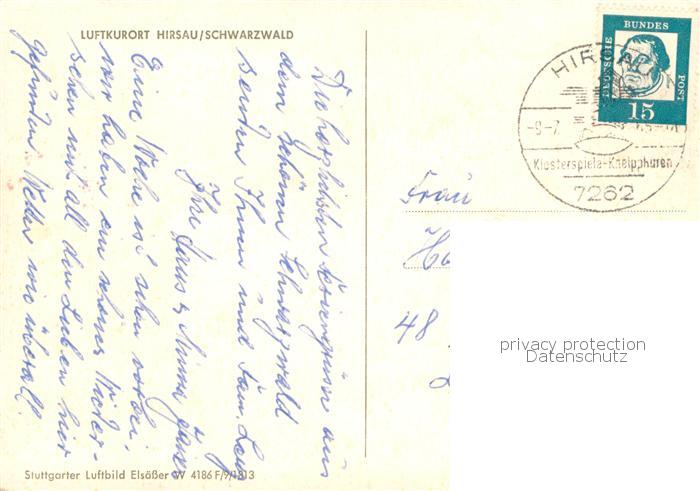 LUFTKURORT HIRSAU/SCHWARZWALD
Die herzlichsten Feriengrüsse aus
dem schönen Schwarzwald
senden Ihnen und Fam.
Ihre Hans u. Minna
Eine Woche ist schon vorbei.
wir haben ein schönes Wieder-
sehen mit all den Lieben hier
gefunden. Wetter wie überall.
Stuttgarter Luftbild Elsäßer W 4186 F/9/1813
DEUTSCHE BUNDES POST
15
HIRSAU
-9-7
Klosterspiele-Kneippkuren
7262
Frau
48
privacy protection
Datenschutz